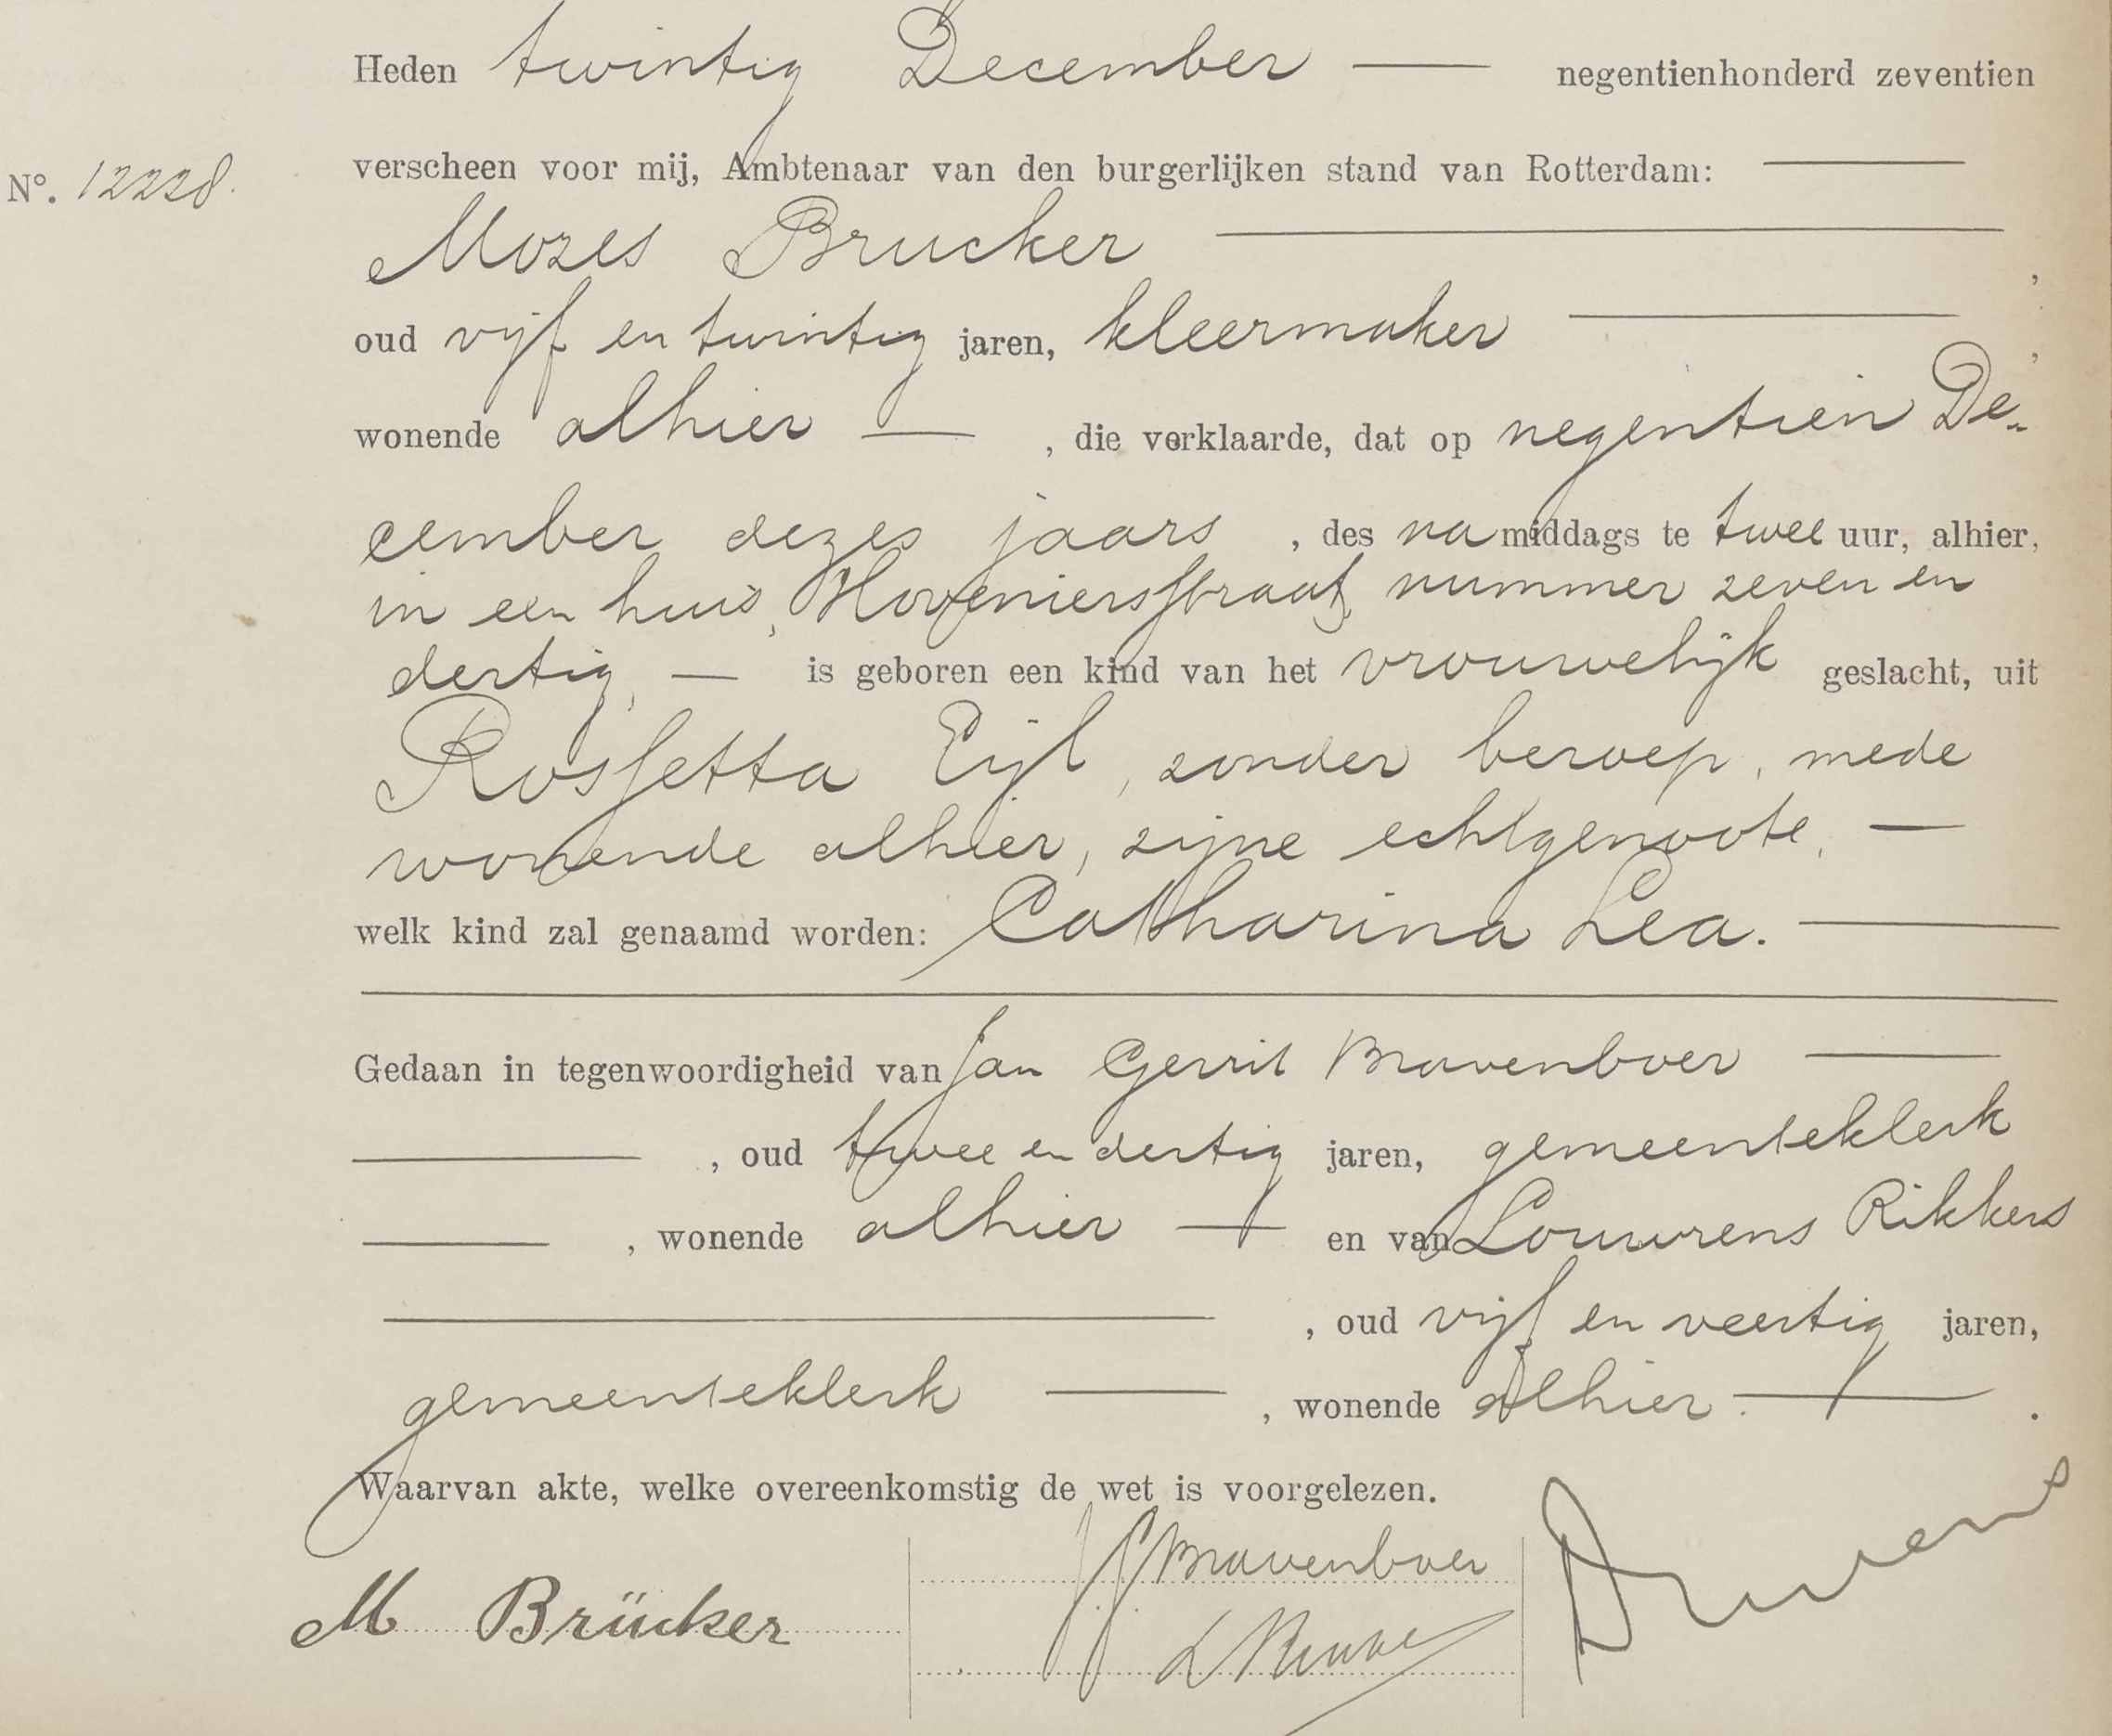 Heden twintig December — negentienhonderd zeventien
verscheen voor mij, Ambtenaar van den burgerlijken stand van Rotterdam: —
Nº. 12228.
Mozes Brucker — ,
oud vijf en twintig jaren, kleermaker — ,
wonende alhier — , die verklaarde, dat op negentien De-
cember dezes jaars , des namiddags te twee uur, alhier,
in een huis, Hoveniersstraat, nummer zeven en
dertig, — is geboren een kind van het vrouwelijk geslacht, uit
Rossetta Eijl, zonder beroep, mede
wonende alhier, zijne echtgenoote, —
welk kind zal genaamd worden: Catharina Lea. —
Gedaan in tegenwoordigheid van Jan Gerrit Bravenboer —
— , oud twee en dertig jaren, gemeenteklerk
— , wonende alhier — en van Louwrens Rikkers
— , oud vijf en veertig jaren,
gemeenteklerk — , wonende alhier. — .
Waarvan akte, welke overeenkomstig de wet is voorgelezen.
JG Bravenboer
M Brücker